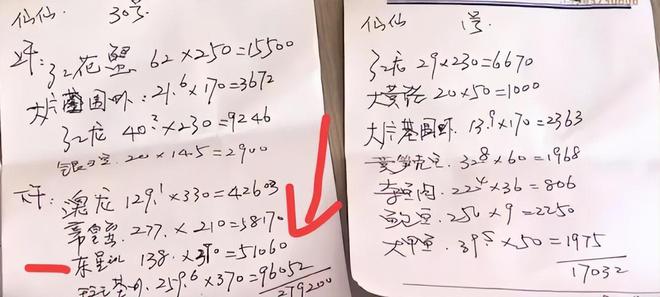 仙仙. 30号.
上午: 红花蟹 62×250=15500
大片基围虾: 21.6×170=3672
红龙 40.2×230=9246
20×14.5=2900
下午: 澳龙 129.1×330=42603
277×210=58170
东星斑 138×370=51060
259.6×370=96052
279200
仙仙 1号.
红龙 29×230=6670
20×50=1000
大片基围虾. 13.9×170=2363
32.8×60=1968
22.4×36=806
250×9=2250
大甲鱼. 39.5×50=1975
17032